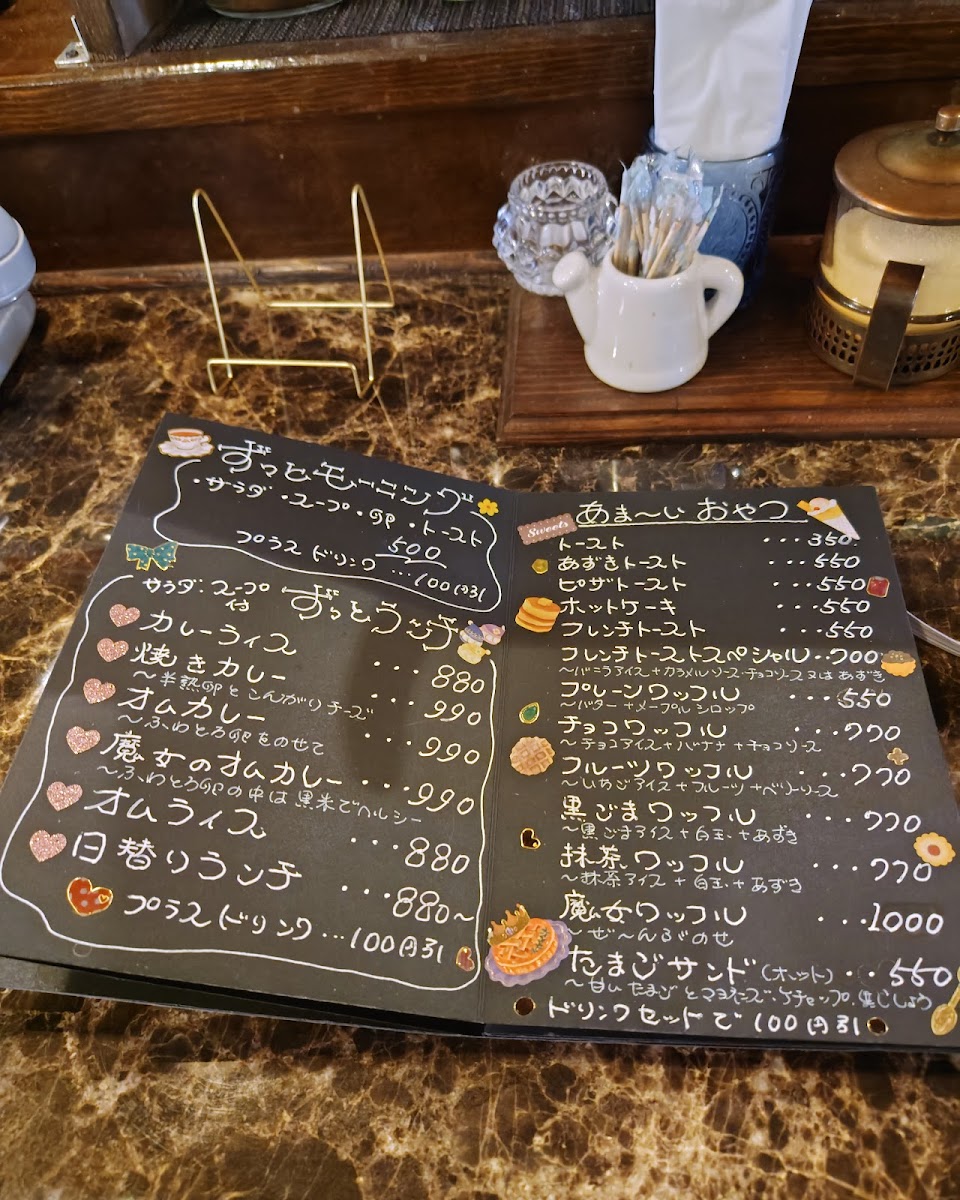 ずっとモーニング
・サラダ・スープ・卵・トースト
500
プラスドリンク…100円引
サラダ・スープ付
ずっとランチ
カレーライス…880
焼きカレー…990
〜半熟卵とこんがりチーズ
オムカレー…990
〜ふわとろ卵をのせて
魔女のオムカレー…990
〜ふわとろ卵の中は黒米でヘルシー
オムライス…880
日替りランチ…880〜
プラスドリンク…100円引
Sweets
あま〜いおやつ
トースト…350
あずきトースト…550
ピザトースト…550
ホットケーキ…550
フレンチトースト…550
フレンチトーストスペシャル…700
〜バニラアイス+カラメルソース・チョコソース又はあずき
プレーンワッフル…550
〜バター+メープルシロップ
チョコワッフル…770
〜チョコアイス+バナナ+チョコソース
フルーツワッフル…770
〜いちごアイス+フルーツ+ベリーソース
黒ごまワッフル…770
〜黒ごまアイス+白玉+あずき
抹茶ワッフル…770
〜抹茶アイス+白玉+あずき
魔女ワッフル…1000
〜ぜ〜んぶのせ
たまごサンド(ホット)‥550
〜甘いたまごとマヨネーズ・ケチャップ、焦じしょう
ドリンクセットで100円引